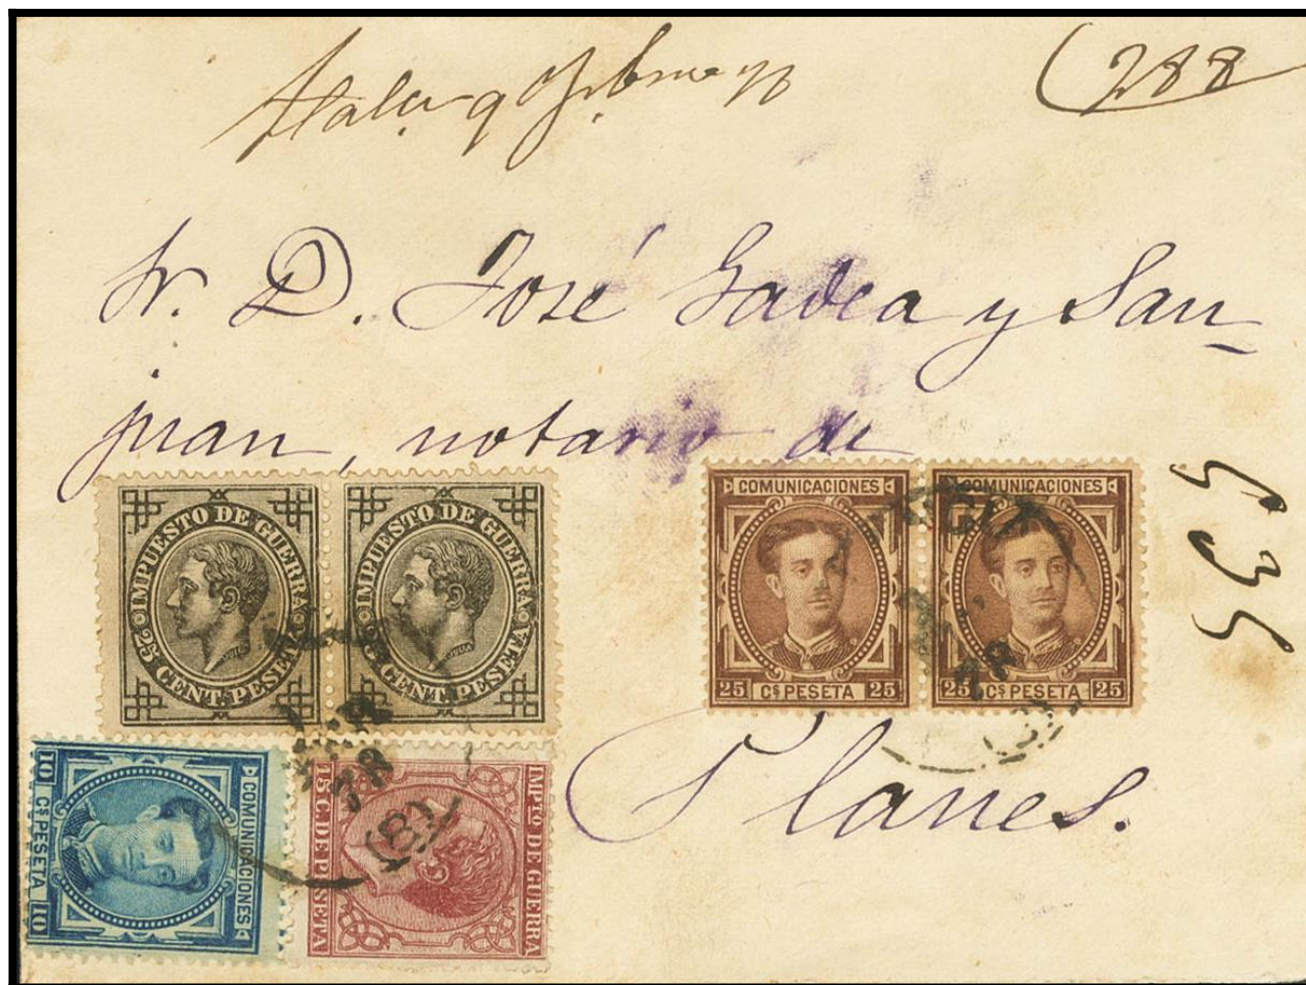 288
Sr. D. José Gadea y San-
juan, notario de
IMPUESTO DE GUERRA
25 CENT. PESETA
IMPUESTO DE GUERRA
CENT. PESETA
COMUNICACIONES
25 Cs PESETA 25
COMUNICACIONES
25 Cs PESETA 25
535
Planes.
COMUNICACIONES
10 Cs PESETA 10
IMPTO DE GUERRA
15 C. DE PESETA
78
78
(8)